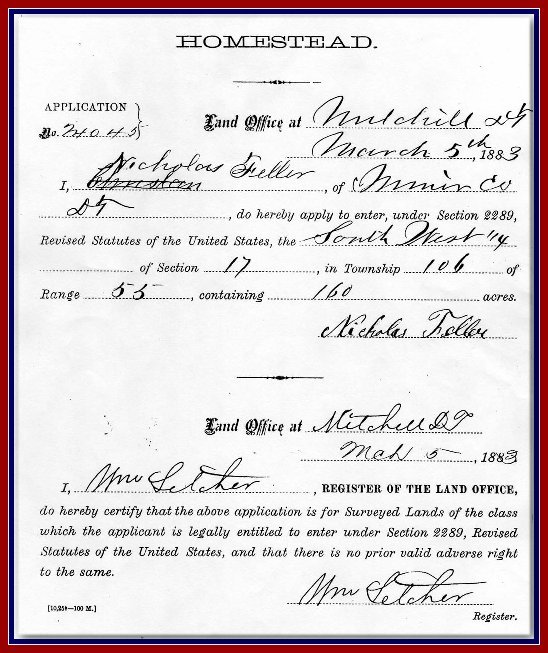 HOMESTEAD.
APPLICATION
No. 24045
Land Office at Mitchill DT
March 5th, 1883
Nicholas Feller
I, , of Miner Co
DT , do hereby apply to enter, under Section 2289,
Revised Statutes of the United States, the South West 1/4
of Section 17 , in Township 106 of
Range 55 , containing 160 acres.
Nicholas Feller
Land Office at Mitchell DT
Mch 5 , 1883
I, Wm Letcher , REGISTER OF THE LAND OFFICE,
do hereby certify that the above application is for Surveyed Lands of the class
which the applicant is legally entitled to enter under Section 2289, Revised
Statutes of the United States, and that there is no prior valid adverse right
to the same.
Wm Letcher
Register.
[10,258—100 M.]